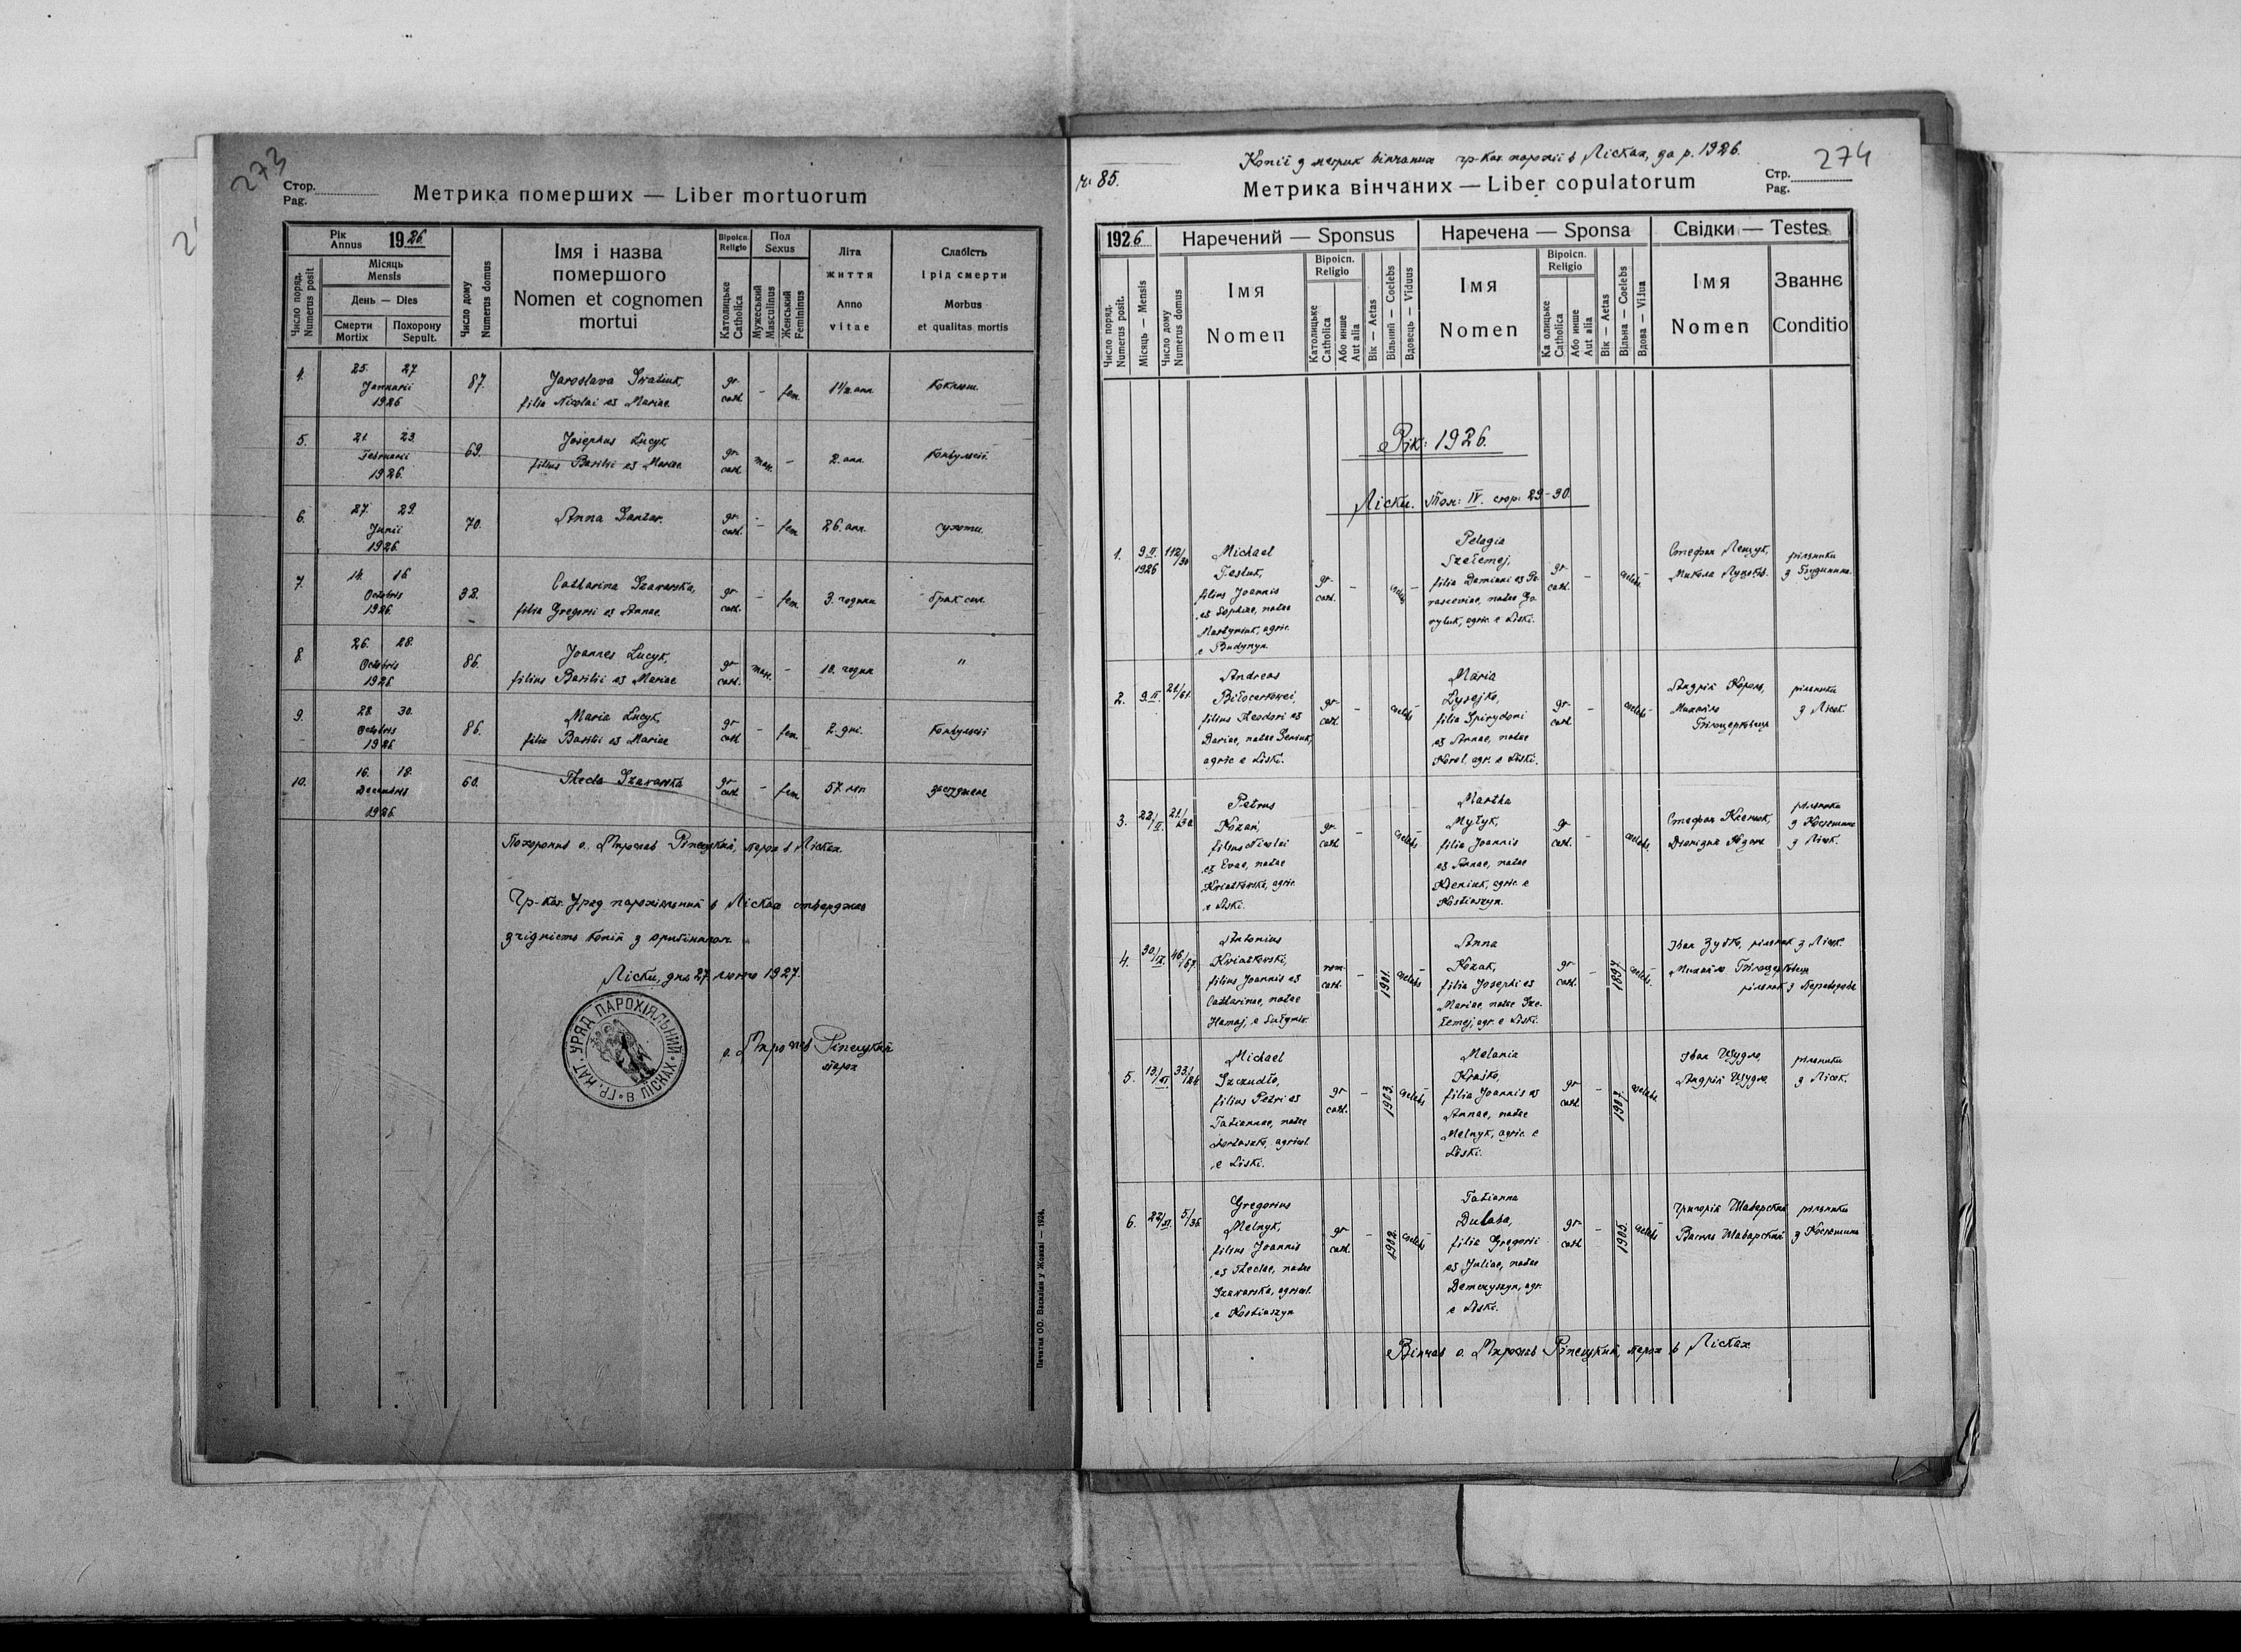 273
Стор.
Pag.
Метрика померших — Liber mortuorum
Рік
Annus
1926
Місяць
Mensis
День — Dies
Число поряд.
Numerus posit
Смерти
Mortix
Похорону
Sepult.
Число дому
Numerus domus
Імя і назва
помершого
Nomen et cognomen
mortui
Віроісп.
Religio
Католицьке
Catholica
Пол
Sexus
Мужеський
Masculinus
Женський
Femininus
Літа
життя
Anno
vitae
Слабість
і рід смерти
Morbus
et qualitas mortis
4. 25. 27. Januarii 1926 87.
filia Nicolai et Mariae
gr. cath. – fem. 1 1/2 ann. коклюш.
5. 21. 23. Februarii 1926. 69.
Josephus Łucyk,
filius Basilii et Mariae
gr. cath. masc. – 2. ann. конвульсії.
6. 27. 29. Junii 1926. 70.
Anna
gr. cath. – fem. 26. ann. сухоти.
7. 14. 16. Octobris 1926. 32.
Catharina Szawarska,
filia Gregorii et Annae
gr. cath. – fem. 3. години брак сил.
8. 26. 28. Octobris 1926. 86.
Joannes Łucyk,
filius Basilii et Mariae
gr. cath. masc. – 10. годин "
9. 28. 30. Octobris 1926 86.
Maria Łucyk,
filia Basilii et Mariae
gr. cath. – fem. 2. дні. конвульсії
10. 16. 18. Decembris 1926. 60.
Thecla Szawarska
gr. cath. – fem. 57. літ
Похоронив о. Мирослав Ріпецький, парох в Лісках.
Гр-кат. Уряд парохіяльний в Лісках стверджає
згідність копії з оригіналом.
Ліски, дня 27. лютого 1927.
ГР. КАТ. УРЯД ПАРОХІЯЛЬНИЙ В ЛІСКАХ
о. Мирослав Ріпецький
парох
Печатня ОО. Василіян у Жовкві — 1924.
Копії з метрик вінчаних гр-кат. парохії в Лісках, за р. 1926.
274
85.
Метрика вінчаних — Liber copulatorum
Стр.
Pag.
1926
Наречений — Sponsus
Наречена — Sponsa
Свідки — Testes
Число поряд.
Numerus posit.
Місяць — Mensis
Число дому
Numerus domus
Імя
Nomen
Віроісп.
Religio
Католицьке
Catholica
Або инше
Aut alia
Вік — Aetas
Вільний — Coelebs
Вдовець — Viduus
Імя
Nomen
Віроісп.
Religio
Ка олицьке
Catholica
Або инше
Aut alia
Вік — Aetas
Вільна — Coelebs
Вдова — Vidua
Імя
Nomen
Званнє
Conditio
Рік: 1926.
Ліски. Том: IV. стор: 29-30.
1. 9/II. 1926 112/30
Michael
filius Joannis
et Sophiae, natae
Martyniuk, agric.
e Budynyn.
gr. cath. – coelebs –
Pelagia
Szełemej,
filia Damiani et Pa-
rasceviae, natae Ha-
wryluk, agric. e Liski.
gr. cath. – coelebs –
Стефан
Микола
рільники
з Будинина.
2. 9/II. 21/61.
Andreas
Biłocerkowci,
filius Theodori et
Dariae, natae Seniuk,
agric. e Liski.
gr. cath. – coelebs –
Maria
Łysejko,
filia Spirydoni
et Annae, natae
Korol, agr. e Liski.
gr. cath. – coelebs –
Андрій Король,
Михайло
рільники
з Лісок.
3. 22/II. 21/
Petrus
Kozan,
filius Nicolai
et Evae, natae
Kwiatkowska, agric.
e Liski.
gr. cath. – coelebs
Martha
Mytyk,
filia Joannis
et Annae, natae
agric. e
Kostiaszyn.
gr. cath. – coelebs.
Стефан
рільники
з Костяшина
з Лісок.
4. 30/IX. 46/67
Antonius
Kwiatkowski,
filius Joannis et
Catharinae, natae
Hamaj, e
rom. cath. – 1901. coelebs
Anna
Kozak,
filia Josephi et
Mariae, natae Sze-
łemej, agr. e Liski.
gr. cath. – 1897. coelebs.
Іван Зубко, рільник з Лісок.
Михайло
рільник з Переводова
5. 13/XI. 33/
Michael
Szczudło,
filius Petri et
Tatiannae, natae
agricol.
e Liski.
gr. cath. – 1903. coelebs
Melania
Kraśko,
filia Joannis et
Annae, natae
Melnyk, agric. e
Liski.
gr. cath. – 1907. coelebs
Іван Щудло,
Андрій Щудло,
рільники
з Лісок.
6. 22/XI. 5/36
Gregorius
Melnyk,
filius Joannis
et Theclae, natae
Szawarska, agricol.
e Kostiaszyn
gr. cath. – 1902. coelebs
Tatianna
Dubaba,
filia Gregorii
et Juliae, natae
Demczyszyn, agr.
e Liski.
gr. cath. – 1905. coelebs
Григорій Шаварский
Василь Шаварский
рільники
з Костяшина
Вінчав о. Мирослав Ріпецький, парох в Лісках